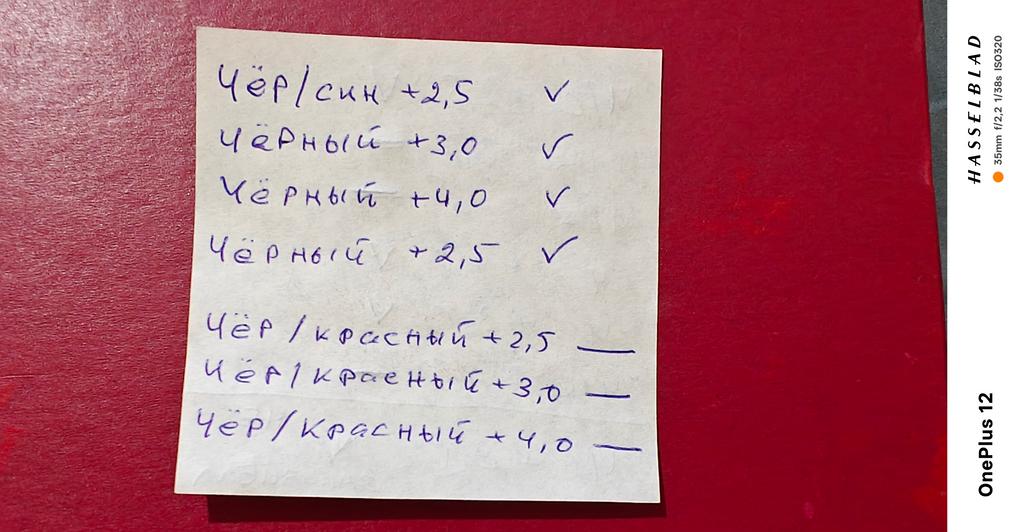 Чёр/син +2,5 ✓
Чёрный +3,0 ✓
Чёрный +4,0 ✓
Чёрный +2,5 ✓
Чёр/красный +2,5 —
Чёр/красный +3,0 —
Чёр/Красный +4,0 —
HASSELBLAD
35mm f/2.2 1/38s ISO320
OnePlus 12